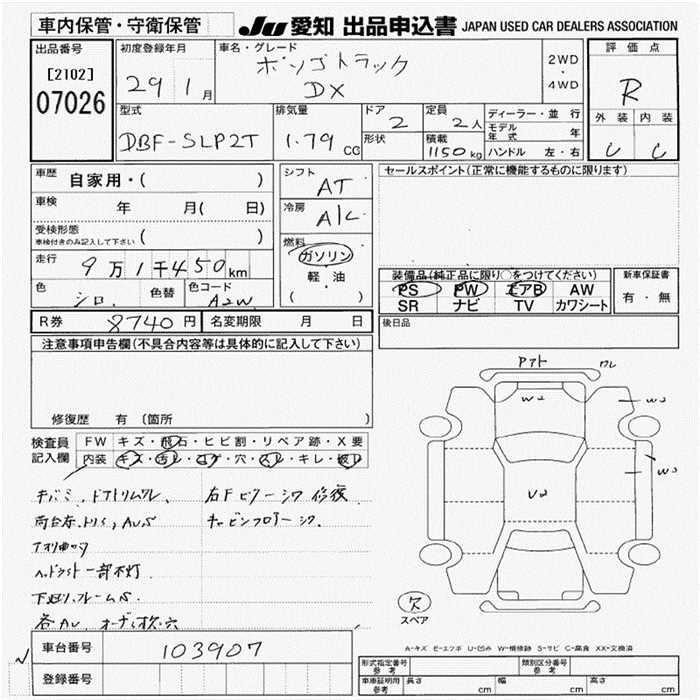 車内保管・守衛保管
JU 愛知 出品申込書 JAPAN USED CAR DEALERS ASSOCIATION
出品番号
[2102]
07026
初度登録年月
29 1月
車名・グレード
ボンゴトラック
DX
2WD
・
4WD
評価点
R
外装 内装
型式
DBF-SLP2T
排気量
1.79 CC
ドア
2
形状
定員
2人
積載
1150kg
ディーラー・並行
モデル年式 年
ハンドル 左・右
車歴
自家用・( )
車検
年 月( 日)
受検形態
車検付きのみ記入して下さい ( )
走行
9万1千450km
色
シロ
色替
色コード
A2W
シフト
AT
冷房
A/C
燃料
ガソリン
軽・油
( )
セールスポイント(正常に機能するものに限ります)
装備品(純正品に限り○をつけてください)
PS PW エアB AW
SR ナビ TV カワシート
新車保証書
有・無
R券 8740円
名変期限 月 日
後日品
注意事項申告欄(不具合内容等は具体的に記入して下さい)
修復歴 有 〔箇所
検査員
記入欄
FW キズ・飛石・ヒビ割・リペア跡・X要
内装 キズ・汚レ・コゲ・穴・スレ・キレ・破レ
キバミ、ドアトリムワレ、
右Fピラーシワ 修復
キャビンフロアーシワ
ヘッドライト一部不灯
車台番号 103907
登録番号
W2
U2
W3
W3
欠
スペア
A-キズ E-エクボ U-凹み W-補修跡 S-サビ C-腐食 XX-交換済
形式指定番号
参考
類別区分番号
車庫証明用
参考
長さ cm 幅 cm 高さ cm